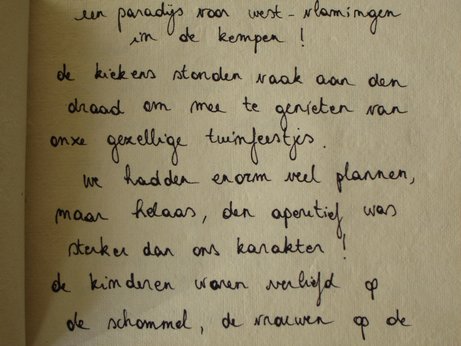 een paradijs voor west-vlamingen
in de kempen !
de kiekens stonden vaak aan den
draad om mee te genieten van
onze gezellige tuinfeestjes.
we hadden enorm veel plannen,
maar helaas, den aperitief was
sterker dan ons karakter !
de kinderen waren verliefd op
de schommel, de vrouwen op de